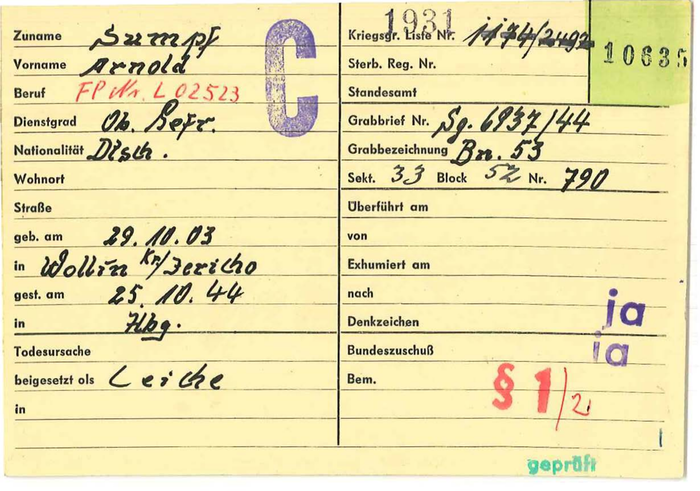 Zuname Sumpf
Vorname Arnold
Beruf FP Nr. L 02523
Dienstgrad Ob. Gefr.
Nationalität Dtsch.
Wohnort
Straße
geb. am 29.10.03
in Wollin Kr/Jericho
gest. am 25.10.44
in Hbg.
Todesursache
beigesetzt als Leiche
in
C
1931
Kriegsgr. Liste Nr. 1174/2492
10635
Sterb. Reg. Nr.
Standesamt
Grabbrief Nr. Sg. 6937/44
Grabbezeichnung Bn. 53
Sekt. 33 Block 52 Nr. 790
Überführt am
von
Exhumiert am
nach
Denkzeichen ja
Bundeszuschuß ja
Bem. § 1/2
geprüft